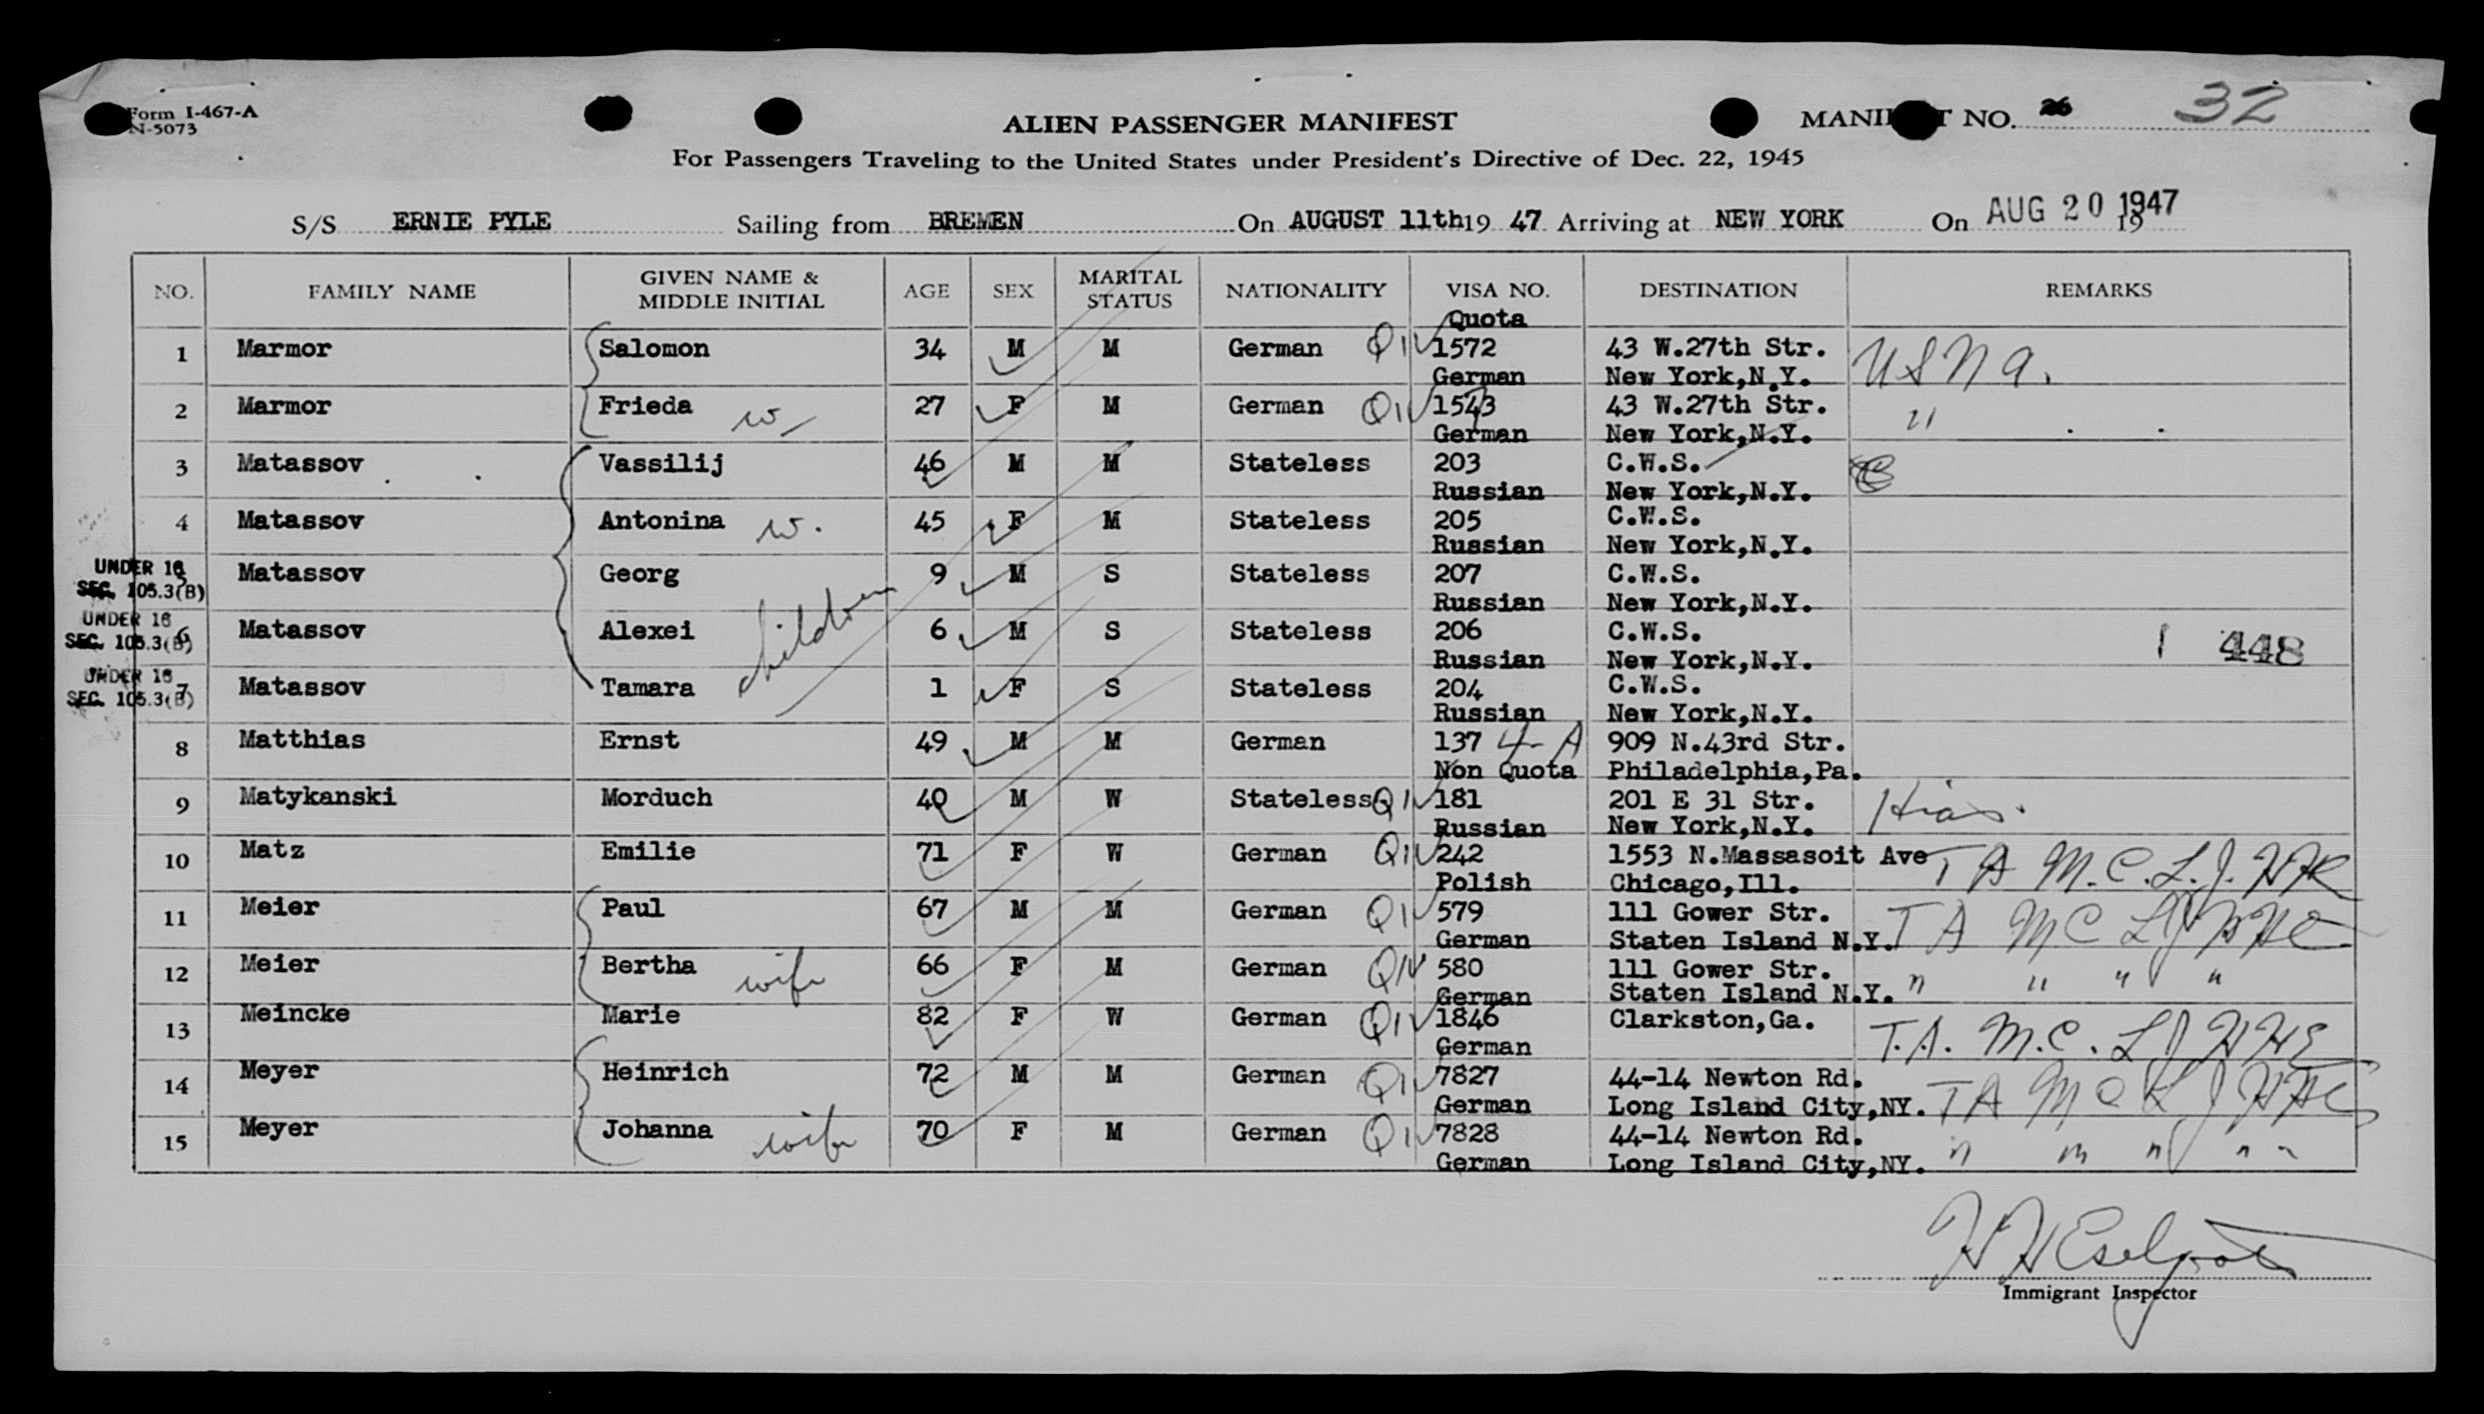 Form I-467-A
N-5073
ALIEN PASSENGER MANIFEST
MANIFEST NO. 26 32
For Passengers Traveling to the United States under President's Directive of Dec. 22, 1945
S/S ERNIE PYLE Sailing from BREMEN On AUGUST 11th 19 47 Arriving at NEW YORK On AUG 20 1947 19
NO. FAMILY NAME GIVEN NAME & MIDDLE INITIAL AGE SEX MARITAL STATUS NATIONALITY VISA NO. DESTINATION REMARKS
Quota
1 Marmor Salomon 34 M M German QIV 1572 43 W.27th Str. USNA.
German New York,N.Y.
2 Marmor Frieda w 27 F M German QIV 1543 43 W.27th Str. "
German New York,N.Y.
3 Matassov Vassilij 46 M M Stateless 203 C.W.S.
Russian New York,N.Y.
4 Matassov Antonina w. 45 F M Stateless 205 C.W.S.
Russian New York,N.Y.
UNDER 16
SEC. 105.3(B)
5 Matassov Georg 9 M S Stateless 207 C.W.S.
Russian New York,N.Y.
children
UNDER 16
SEC. 105.3(B)
6 Matassov Alexei 6 M S Stateless 206 C.W.S.
Russian New York,N.Y.
1 448
UNDER 16
SEC. 105.3(B)
7 Matassov Tamara 1 F S Stateless 204 C.W.S.
Russian New York,N.Y.
8 Matthias Ernst 49 M M German 137 4-A 909 N.43rd Str.
Non Quota Philadelphia,Pa.
9 Matykanski Morduch 40 M W Stateless QIV 181 201 E 31 Str. Hias.
Russian New York,N.Y.
10 Matz Emilie 71 F W German QIV 242 1553 N.Massasoit Ave T A M.C.L.J.
Polish Chicago,Ill.
11 Meier Paul 67 M M German QIV 579 111 Gower Str. T A M C L J HHE
German Staten Island N.Y.
12 Meier Bertha wife 66 F M German QIV 580 111 Gower Str. " " " "
German Staten Island N.Y.
13 Meincke Marie 82 F W German QIV 1846 Clarkston,Ga. T.A. M.C. L J HHE
German
14 Meyer Heinrich 72 M M German QIV 7827 44-14 Newton Rd. T A M C L J HHE
German Long Island City,NY.
15 Meyer Johanna wife 70 F M German QIV 7828 44-14 Newton Rd. " " " " "
German Long Island City,NY.
Immigrant Inspector